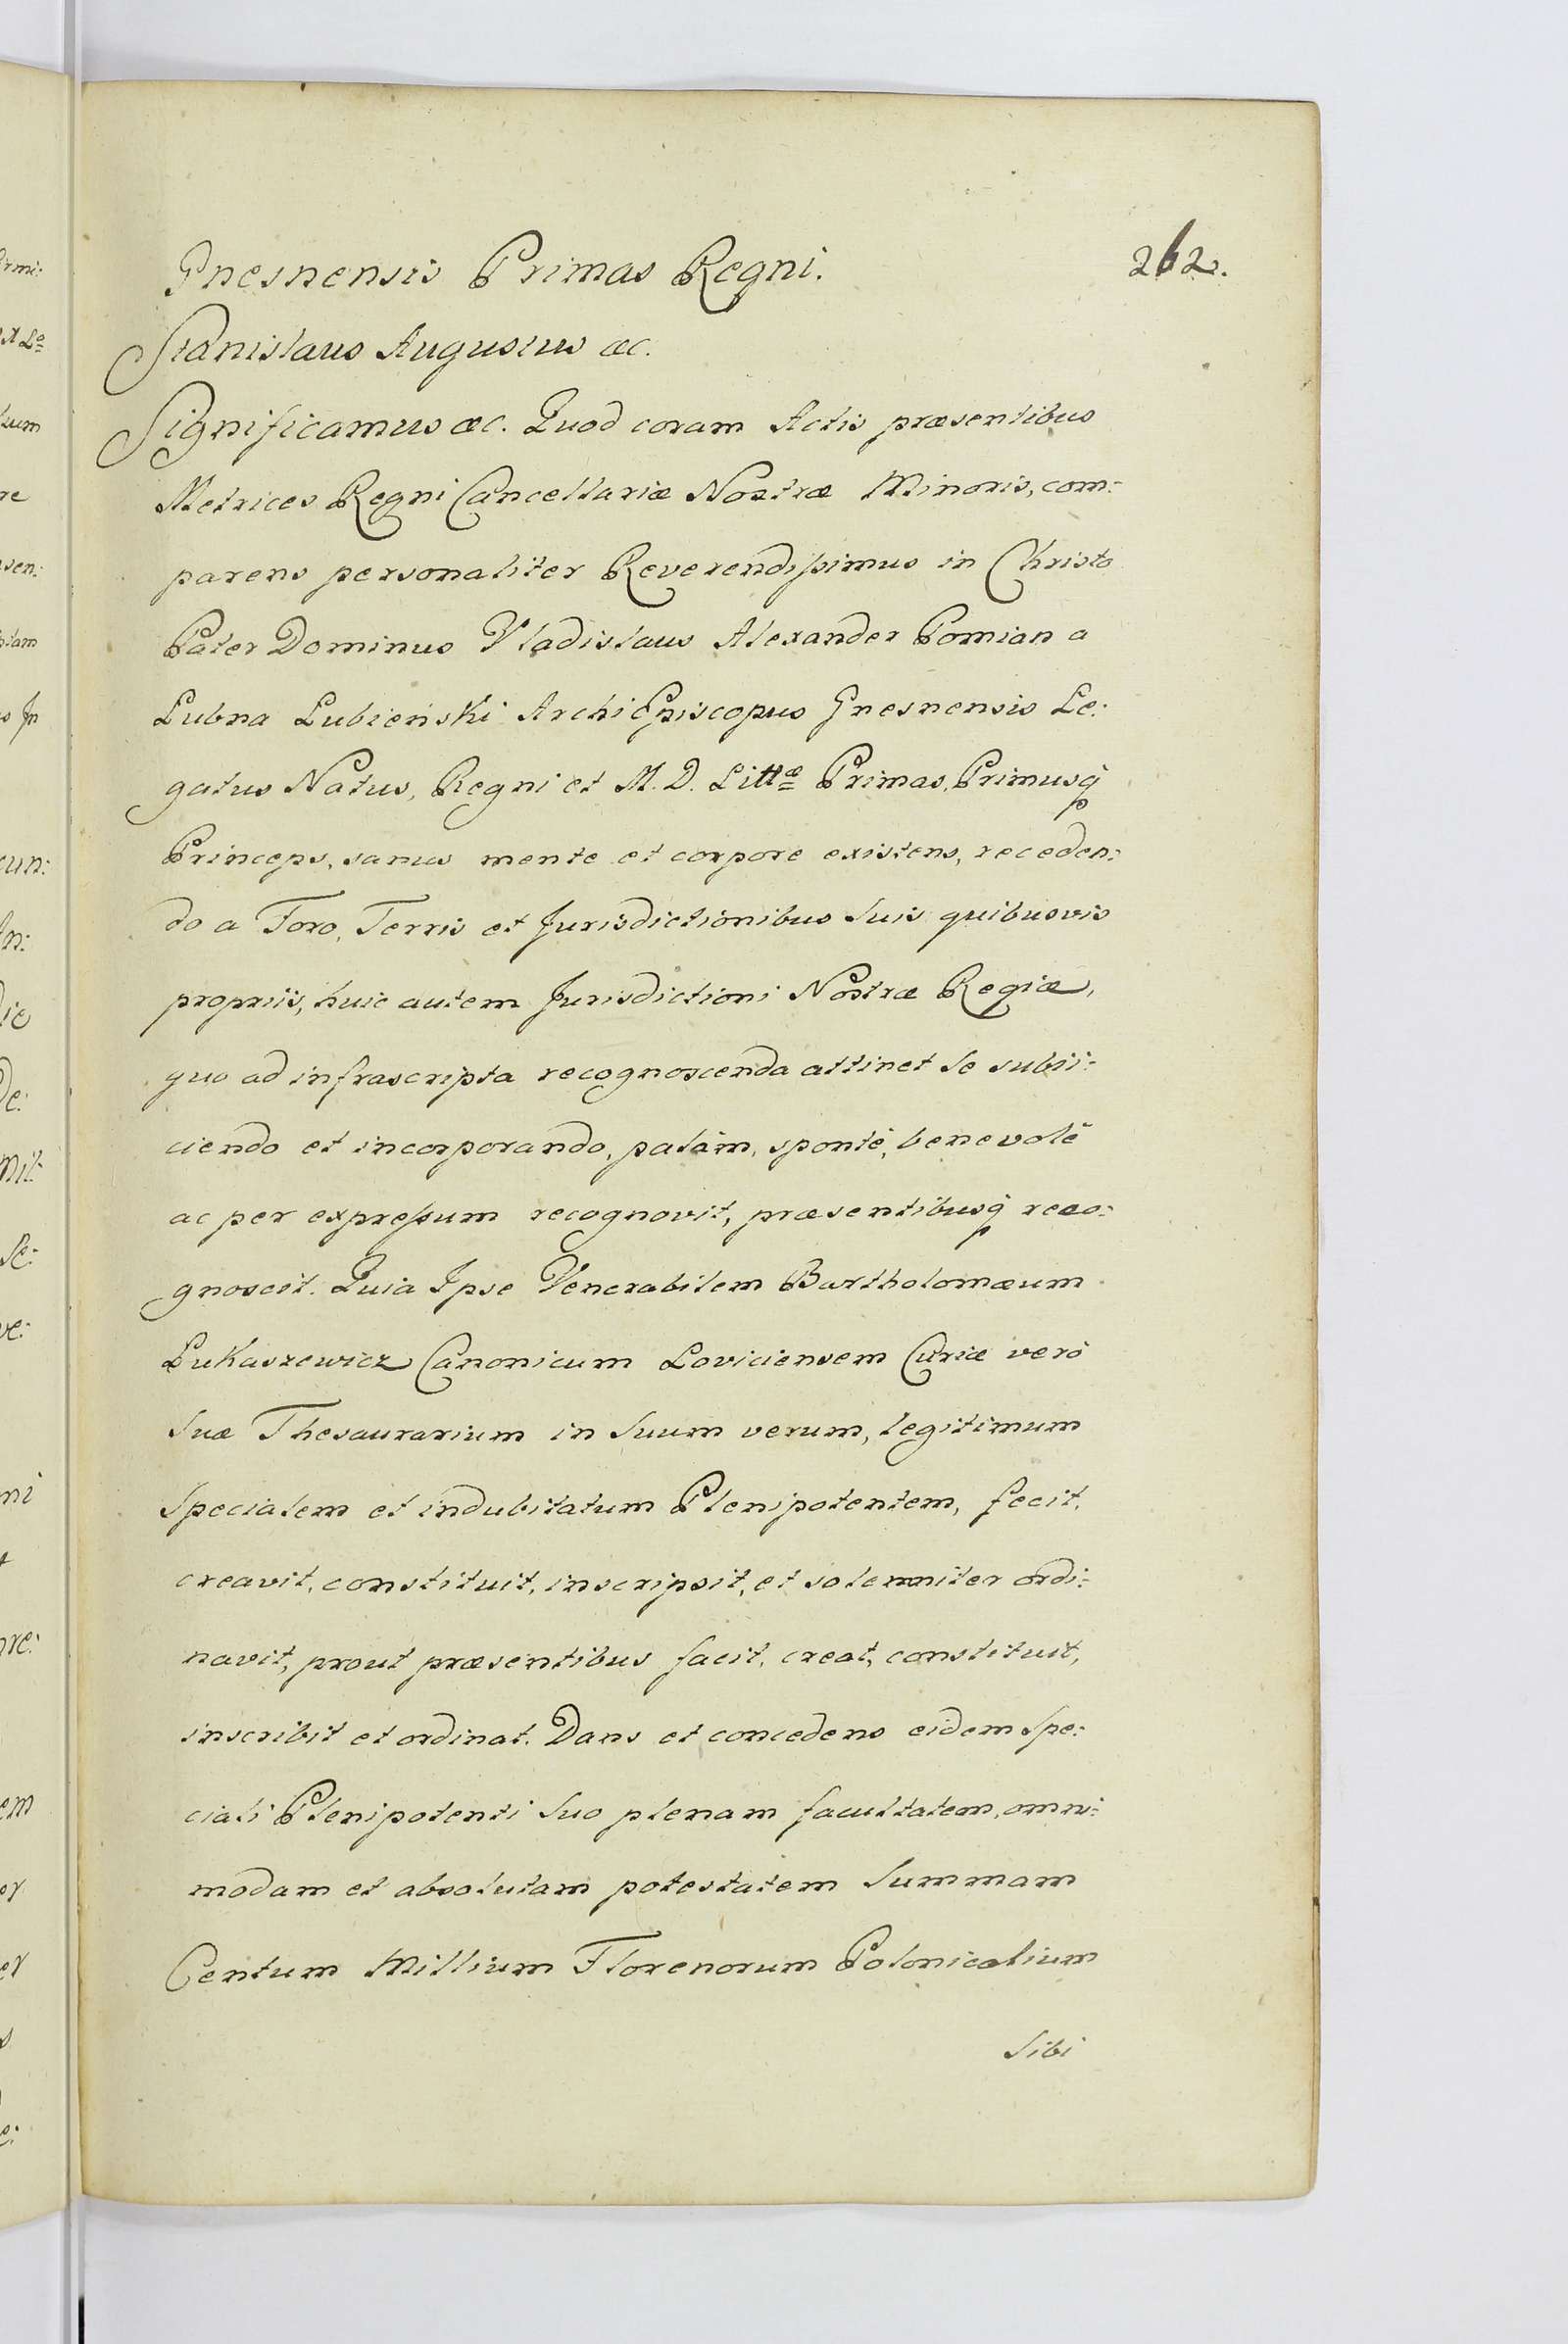 Gnesnensis Primas Regni.
262.
Stanislaus Augustus &c.
Significamus &c. Quod coram Actis præsentibus
Metrices Regni Cancellariæ Nostræ Minoris, com:
parens personaliter Reverendissimus in Christo
Pater Dominus Vladislaus Alexander Pomian a
Łubna Łubieński ArchiEpiscopus Gnesnensis Le:
gatus Natus, Regni et M. D. Littæ Primas, Primusq̃
Princeps, sanus mente et corpore existens, receden:
do a Foro, Terris et Jurisdictionibus Suis quibusvis
propriis, huic autem Jurisdictioni Nostræ Regiæ,
quo ad infrascripta recognoscenda attinet Se subii:
ciendo et incorporando, palàm, spontè, benevolè
ac per expressum recognovit, præsentibusq̃ reco:
gnoscit. Quia Ipse Venerabilem Bartholomæum
Łukaszewicz Canonicum Loviciensem Curiæ verò
Suæ Thesaurarium in Suum verum, legitimum
Specialem et indubitatum Plenipotentem, fecit,
creavit, constituit, inscripsit, et solemniter ordi:
navit, prout præsentibus facit, creat, constituit,
inscribit et ordinat. Dans et concedens eidem Spe:
ciali Plenipotenti Suo plenam facultatem, omni:
modam et absolutam potestatem Summam
Centum Millium Florenorum Polonicalium
Sibi